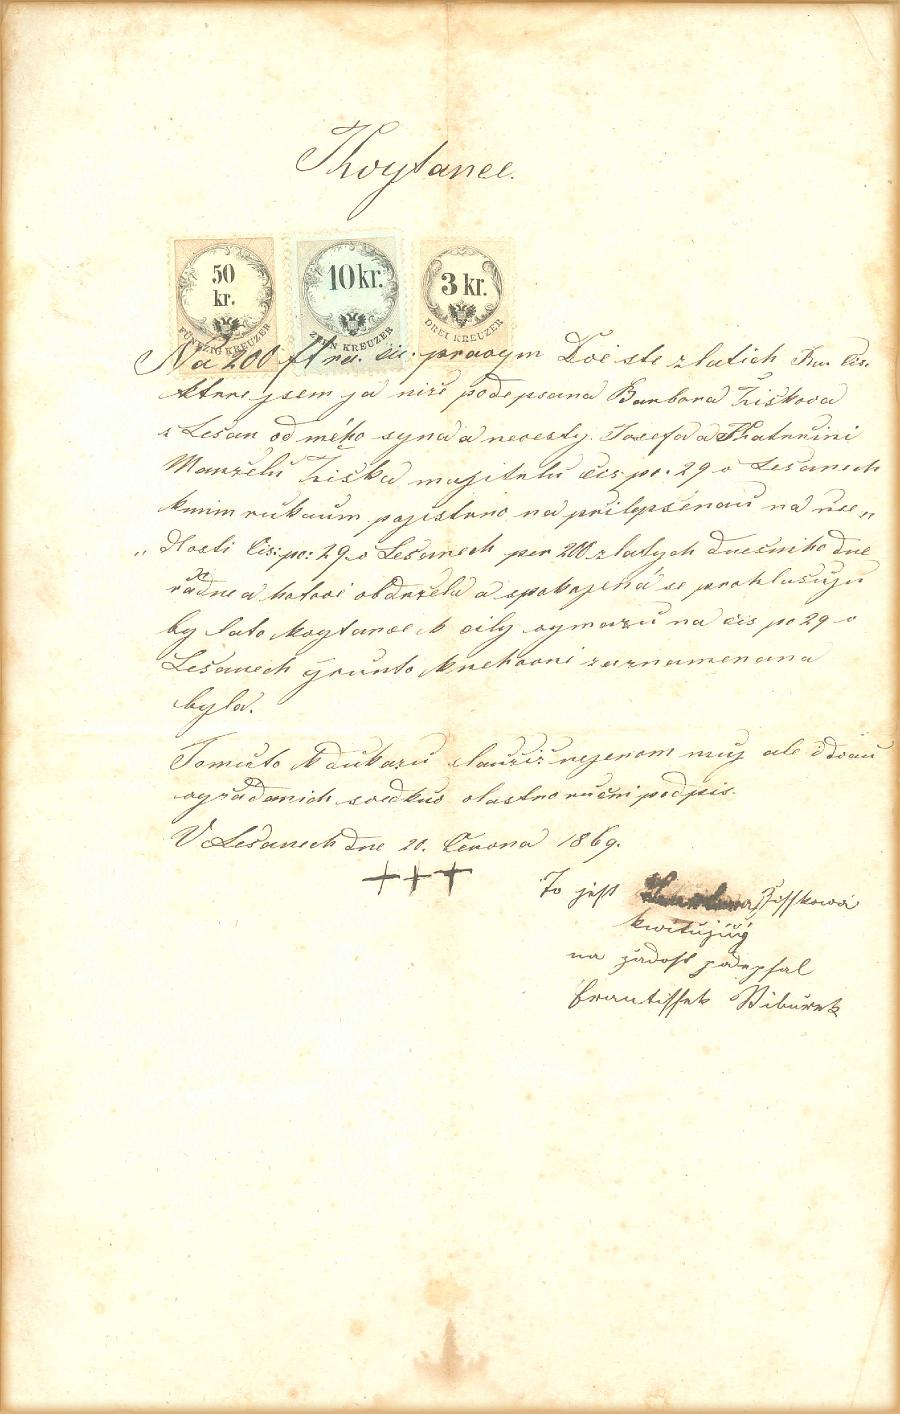 Kvytance.
50 kr.
FÜNFZIG KREUZER
10 kr.
ZEHN KREUZER
3 kr.
DREI KREUZER
Na 200 fl pravym Dvie ste zlatich čís.
ktere jsem ja níže podepsana Barbora Žiškova
z Lešan od mého syna a nevesty Josefa a Kateřini
Manželu Žiška majitelu čís po: 29 v Lešanech
knim rukoum pojistено na přilepšenau na 
čís: po: 29 v Lešanech per 200 zlatych dnešniho dne
řádne a hotově obdržela a spokojená se prohlašuju
by tato kvytance k cily vymazu na čís po 29 v
Lešanech grunto knehovni zaznamenana
byla.
Tomuto k důkazu slauziž nejenom muj ale i dvou
vyžadanich svedků vlastnoruční podpis.
V Lešanech dne 20. Června 1869.
+++ To jest Zisskowá
kwitujíg
na žádost podepsal
Frantissek